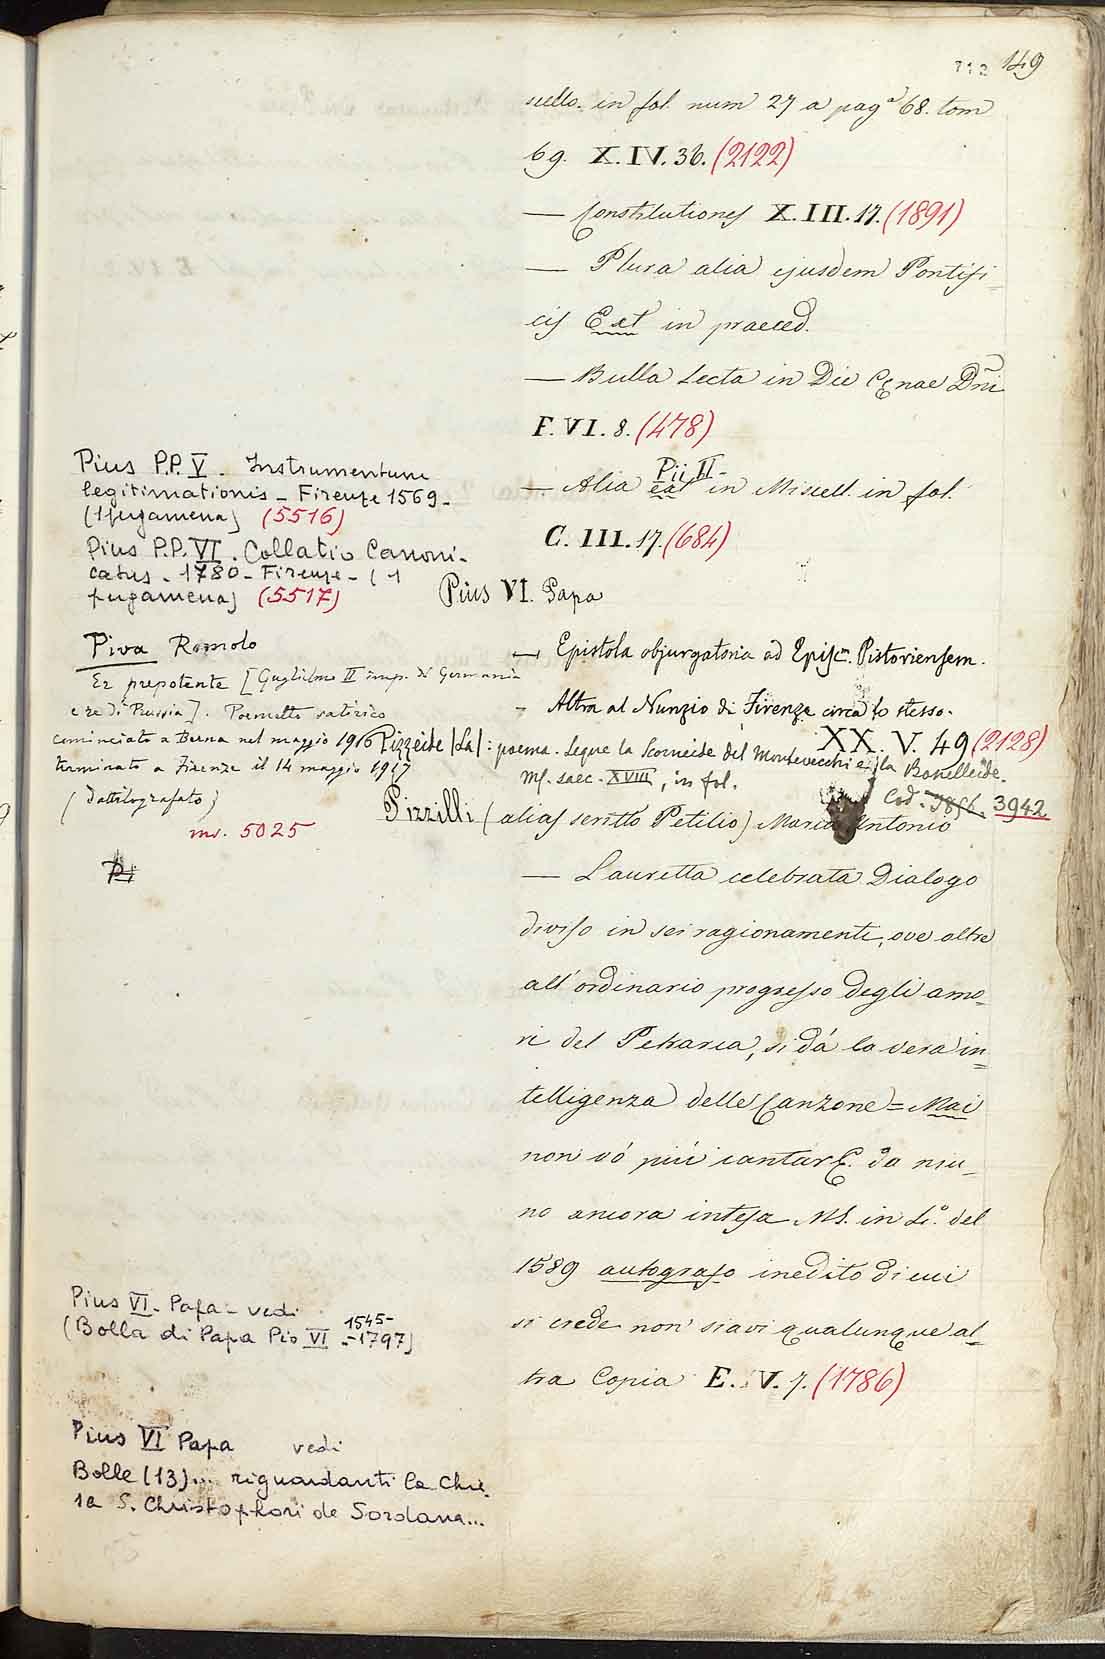 149
scello. in fol. num 27 a pag.ª 68. tom
69. X. IV. 36. (2122)
— Constitutiones X. III. 17. (1891)
— Plura alia ejusdem Pontifi=
cis Ext in praeced.
— Bulla Lecta in Die Cenae Dñi
F. VI. 8. (478)
Pii II -
— Alia ext in Miscell. in fol.
C. III. 17. (684)
Pius P.P. V. Instrumentum
legitimationis - Firenze 1569 -
(1 pergamena) (5516)
Pius P.P. VI. Collatio Canoni-
catus - 1780 - Firenze - (1
pergamena) (5517)
Pius VI. Papa
— Epistola objurgatoria ad Episc.m Pistoriensem.
- Altra al Nunzio di Firenze circa lo stesso.
XX. V. 49 (2128)
Piva Romolo
Er prepotente [Guglielmo II imp. di Germania
e re di Prussia]. Poemetto satirico
cominciato a Berna nel maggio 1916
terminato a Firenze il 14 maggio 1917
(dattilografato)
ms. 5025
Pizzeide (La): poema. Segue la Scorneide del Montevecchi e la Bonelleide.
Ms. saec. XVIII, in fol.
Cod. 3942
Pizzilli (alias scritto Petilio) Marco Antonio
— Lauretta celebrata Dialogo
diviso in sei ragionamenti, ove oltre
all'ordinario progresso degli amo-
ri del Petrarca, si dá la vera in=
telligenza delle Canzone = Mai
non vó piú cantar &. da niu-
no ancora intesa MS. in 4.º del
1589 autografo inedito di cui
si crede non siavi qualunque al=
tra Copia E. V. 7. (1786)
Pius VI. Papa - vedi
(Bolla di Papa Pio VI 1545-
-1797)
Pius VI Papa vedi
Bolle (13)... riguardanti la Chie-
sa S. Christophori de Sordana...